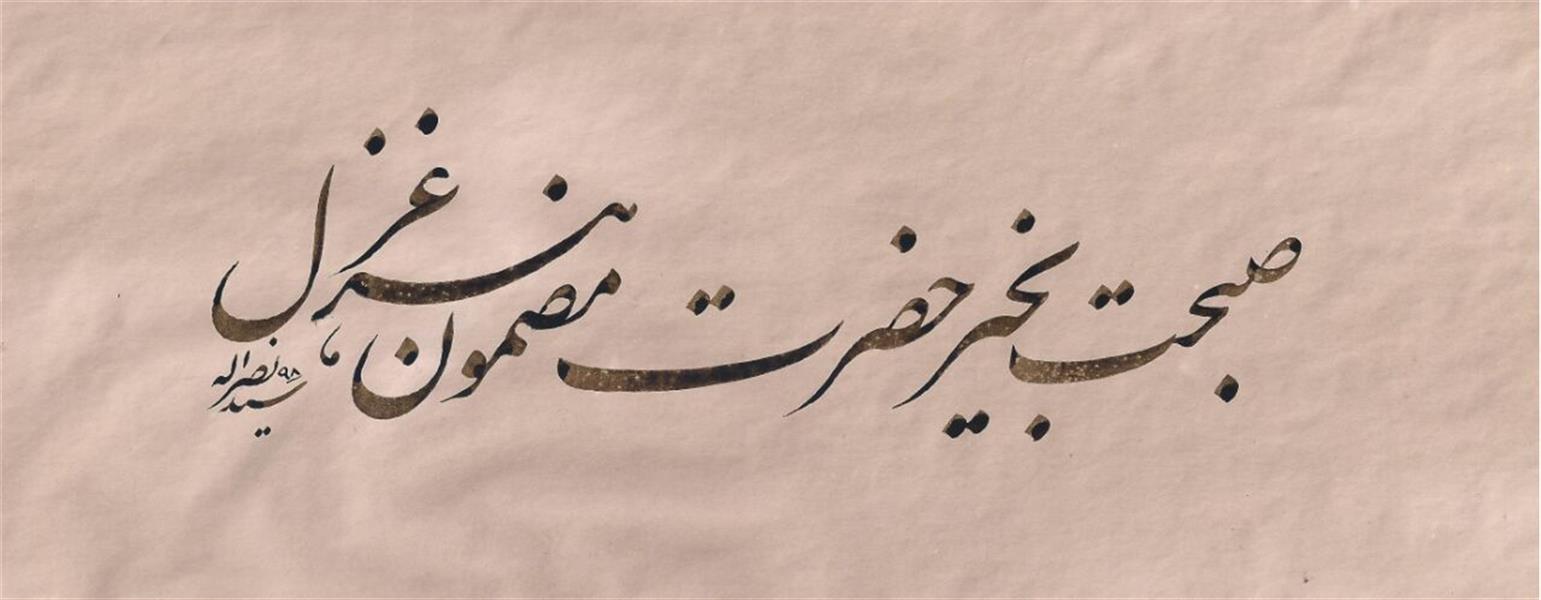 صبحت بخیر حضرت مضمون هر غزل
سید نصراله ۹۸